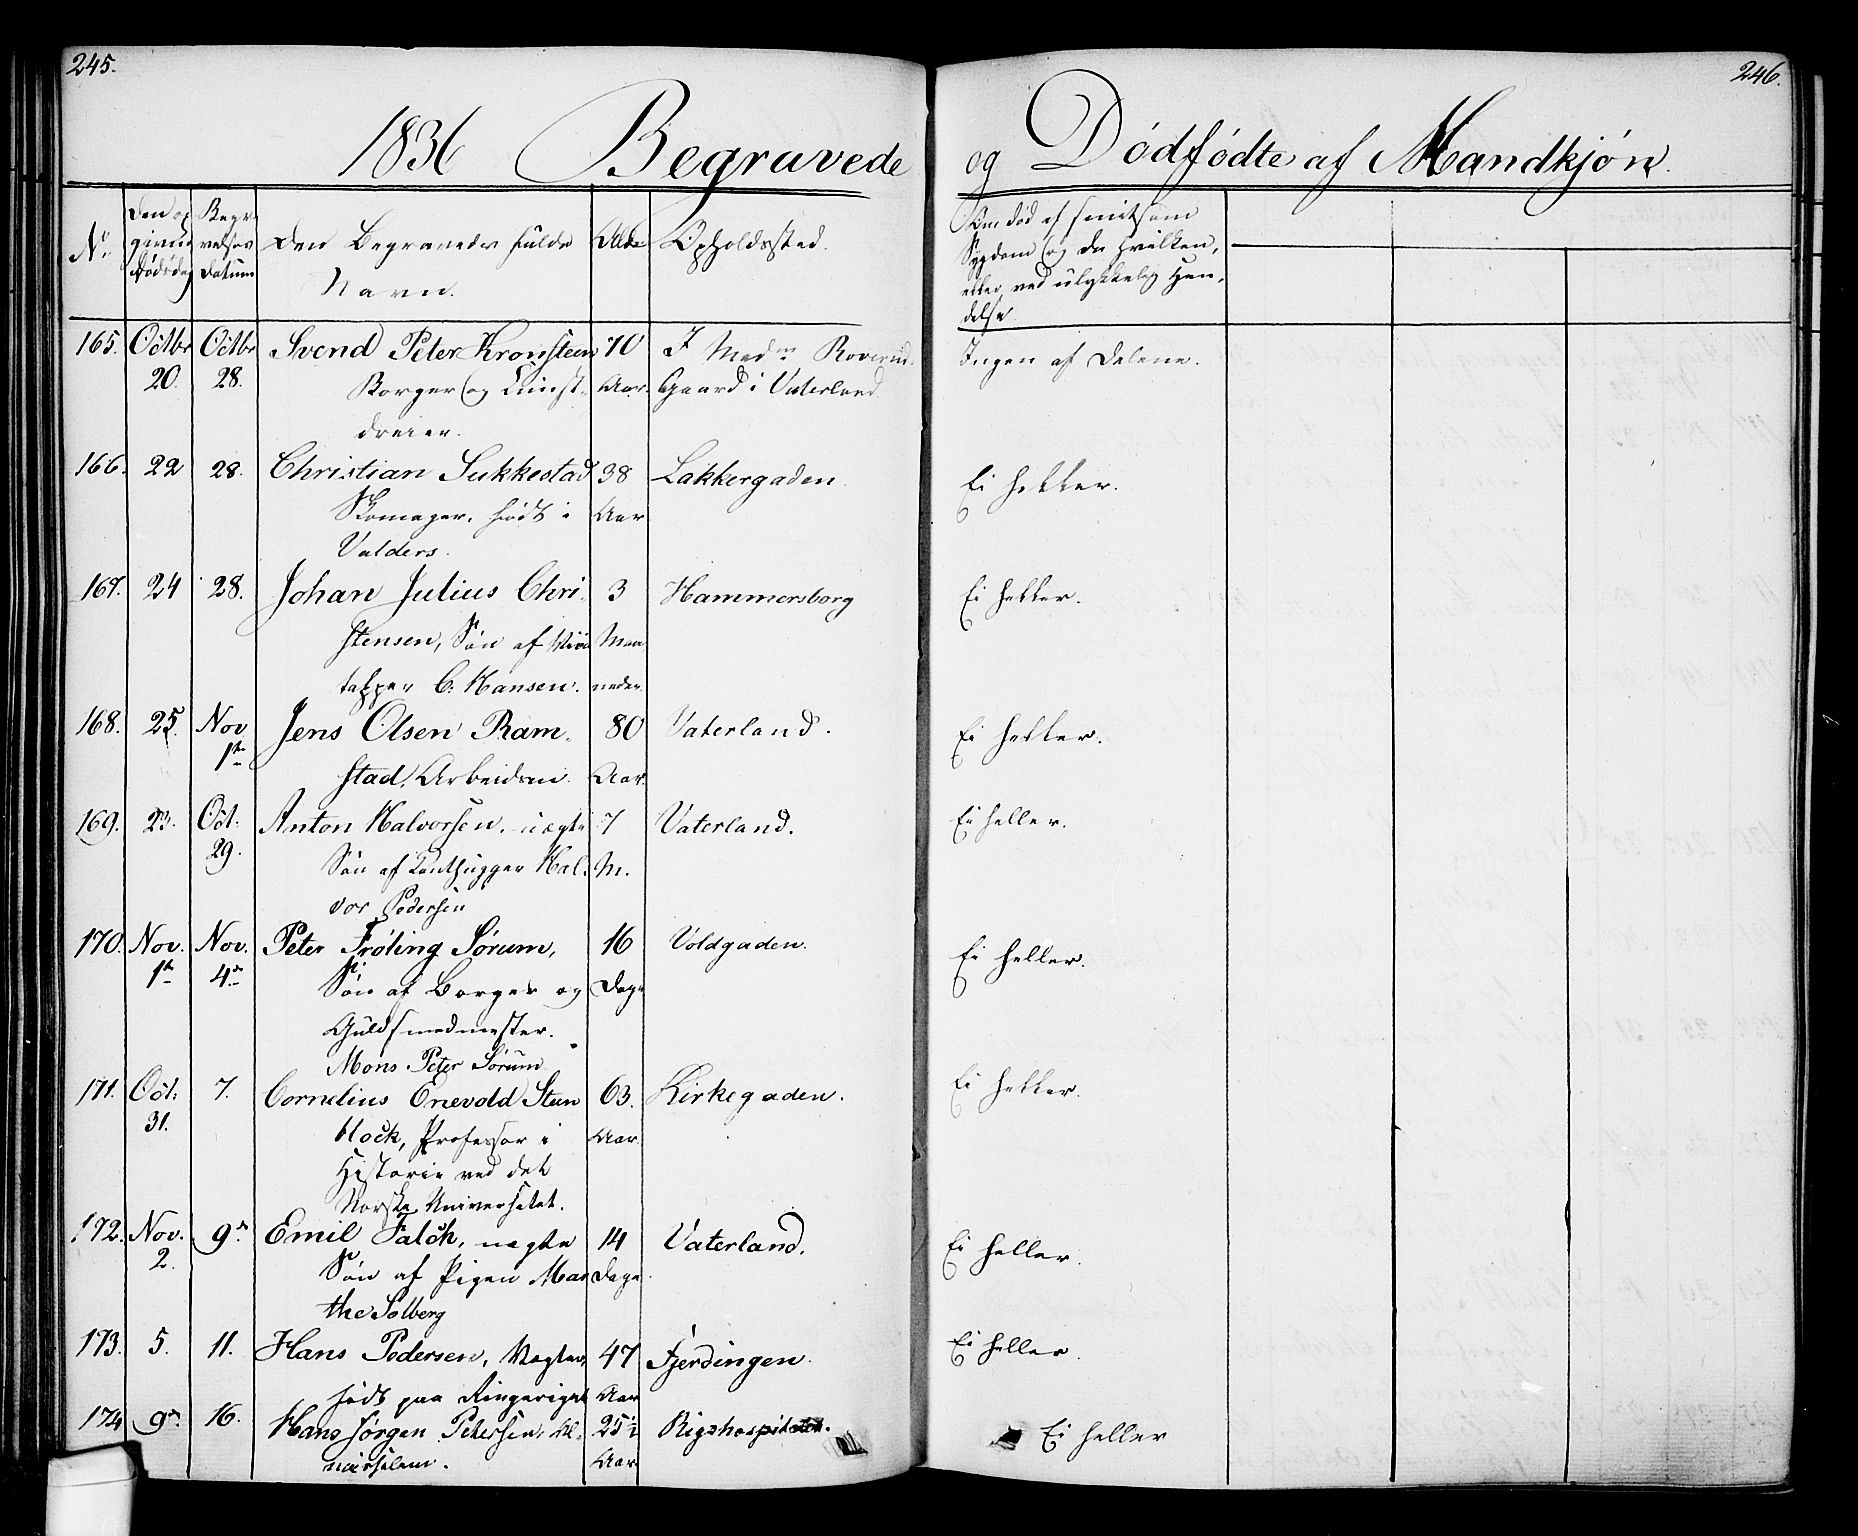 245.
246.
1836 Begravede
og Dødfødte af Mandkjøn.
No
Den op
givne
Dødsdag
Begra
velses
Datum
Den Begravedes fulde
Navn.
Alder
Opholdssted.
Om død af smitsom
Sygdom og da hvilken,
eller ved ulykkelig Hæn-
delse
165. Octbr 20. Octbr 28. Svend Peter Kronsteen 70 I Madm Roverud
Borger og Kunst- Aar. Gaard i Vaterland
dreier.
Ingen af Delene.
166. 22 28. Christian Sukkestad 38 Lakkergaden.
Skomager, født i Aar
Valders.
Ei heller.
167. 24 28. Johan Julius Chri- 3 Hammersborg
stensen, Søn af Viin Maa
tapper C. Hansen. neder.
Ei heller.
168. 25. Nov 1ste Jens Olsen Ram- 80 Vaterland.
stad, Arbeidsm. Aar.
Ei heller.
169. 23. Oct: 29. Anton Halvorsen, uægte 7 Vaterland.
Søn af Hal- M.
vor Pedersen
Ei heller.
170. Nov. 1ste Nov. 4de Peter Fröling Sörum, 16 Voldgaden.
Søn af Borger og Dage
Guldsmedmester.
Mons. Peter Sörum
Ei heller.
171. Oct: 31. 7. Cornelius Enevold Steen 63. Kirkegaden.
block, Professor i Aar
Historie ved det
Norske Universitet.
Ei heller.
172. Nov. 2. 9de Emil Falck, uægte 14 Vaterland.
Søn af Pigen Mar Dage
the Solberg
Ei heller.
173. 5. 11. Hans Pedersen, Vægter, 47 Fjerdingen.
født paa Ringeriget Aar
Ei heller.
174 9de 16. Hans Jörgen Petersen, 25½ Rigshospitalet.
Aar
Ei heller